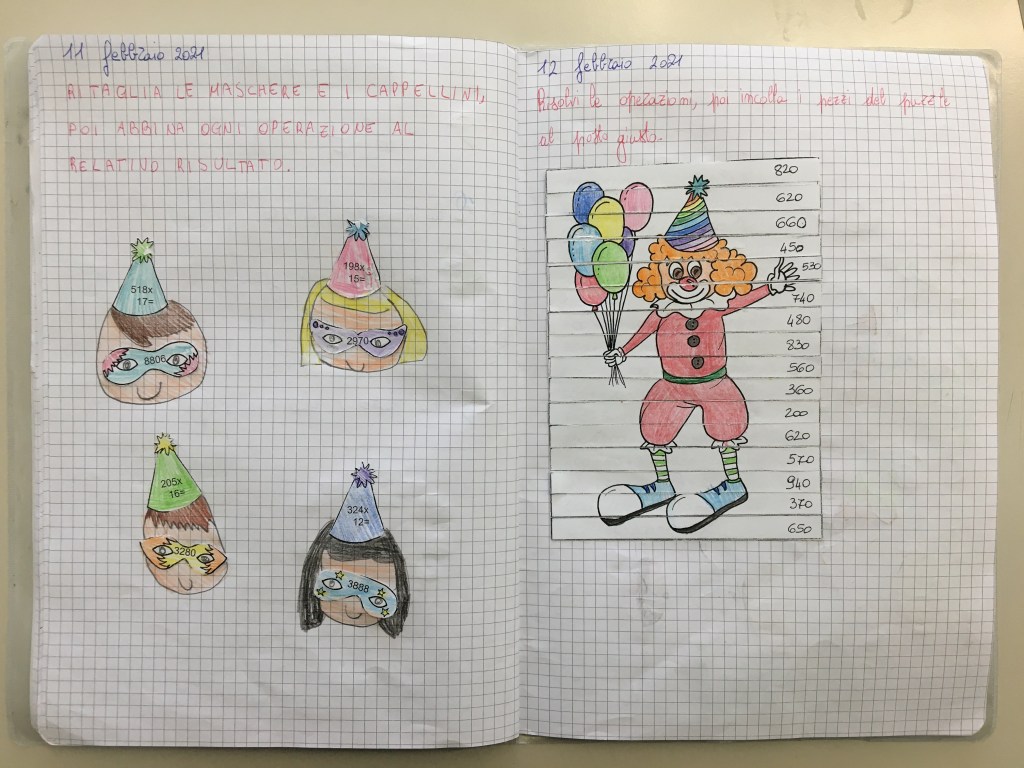 11 febbraio 2021
RITAGLIA LE MASCHERE E I CAPPELLINI,
POI ABBINA OGNI OPERAZIONE AL
RELATIVO RISULTATO.
518x
17=
8806
198x
15=
2970
205x
16=
3280
324x
12=
3888
12 febbraio 2021
Risolvi le operazioni, poi incolla i pezzi del puzzle
al posto giusto.
820
620
660
450
530
740
480
830
560
360
200
620
570
940
370
650